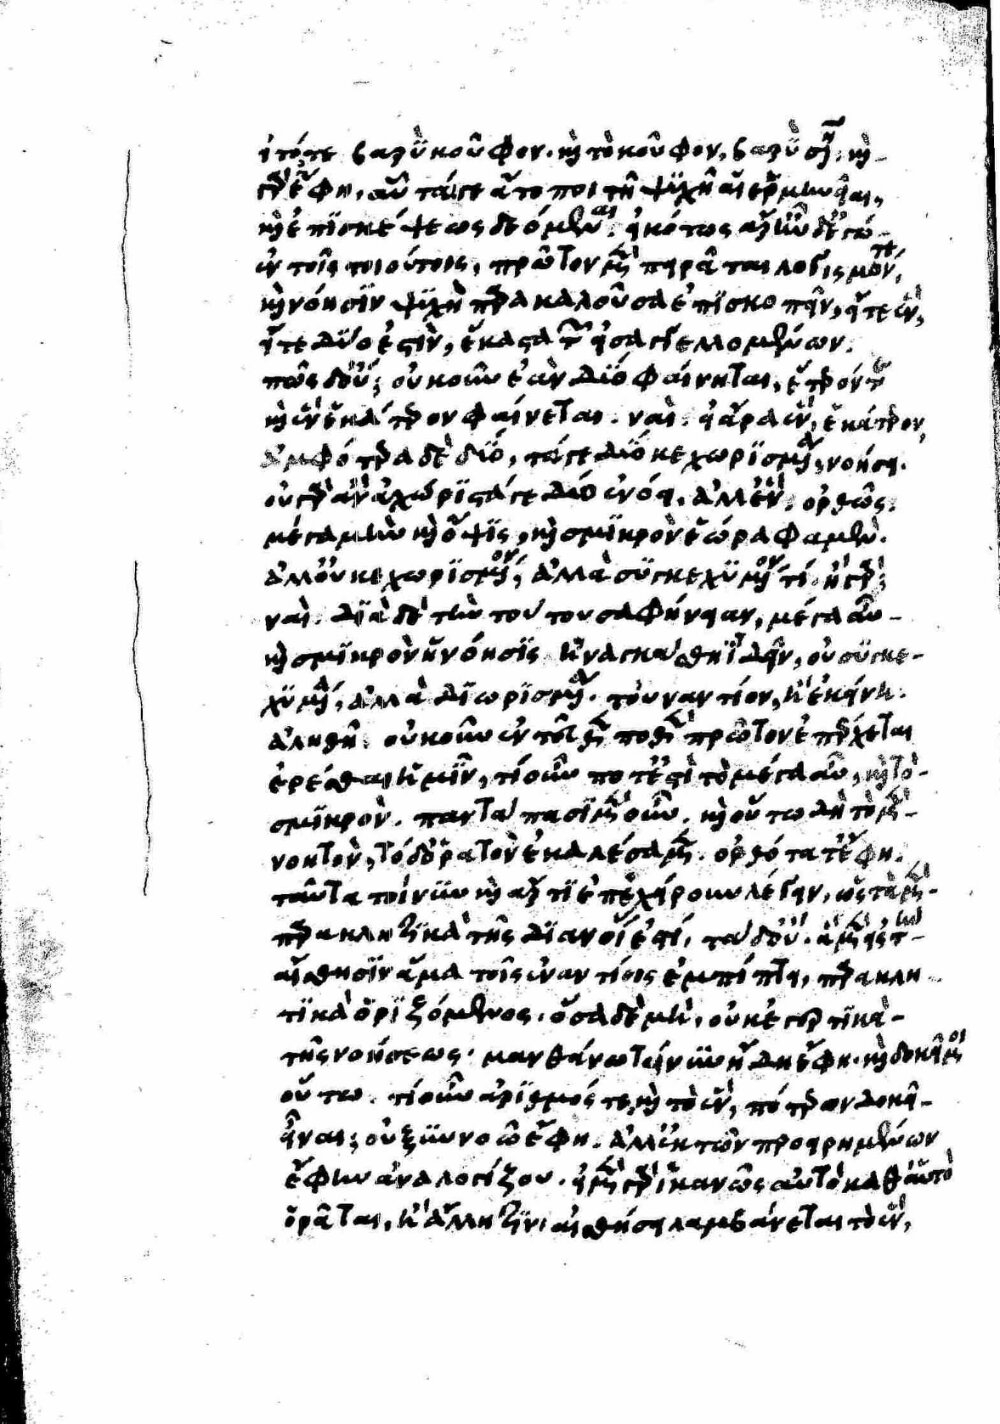 εἴ τό, τε βαρὺ κοῦφον. καὶ τὸ κοῦφον, βαρὺ σημαίνει. καὶ
γὰρ ἔφη, αὗταί γε ἄτοποι τῇ ψυχῇ αἱ ἑρμηνεῖαι,
καὶ ἐπισκέψεως δεόμεναι. εἰκότως ἄρα ἦν δ' ἐγώ
ἐν τοῖς τοιούτοις, πρῶτον μὲν πειρᾶται λογισμόν τε,
καὶ νόησιν ψυχὴ παρακαλοῦσα ἐπισκοπεῖν, εἴτε ἓν,
εἴτε δύο ἐστὶν, ἕκαστα τῶν εἰσαγγελλομένων.
πῶς δ' οὔ; οὐκοῦν ἐὰν δύο φαίνηται, ἕτερόν τε
καὶ ἓν ἑκάτερον φαίνεται. ναί. εἰ ἄρα ἓν, ἑκάτερον,
ἀμφότερα δὲ δύο, τά γε δύο κεχωρισμένα, νοήσει.
οὐ γὰρ ἂν ἀχώριστά γε δύο ἐνόει. ἀλλ' ἕν. ὀρθῶς.
μέγα μὴν καὶ ὄψις, καὶ σμικρὸν ἑώρα φαμὲν.
ἀλλ' οὐ κεχωρισμένον, ἀλλὰ συγκεχυμένον τί. ἦ γάρ;
ναί. διὰ δὲ τὴν τούτου σαφήνειαν, μέγα αὖ
καὶ σμικρὸν ἡ νόησις ἠναγκάσθη ἰδεῖν, οὐ συγκε-
χυμένα, ἀλλὰ διωρισμένα. τοὐναντίον, ἢ ἐκείνη.
ἀληθῆ. οὐκοῦν ἐντεῦθέν ποθεν πρῶτον ἐπέρχεται
ἐρέσθαι ἡμῖν, τί οὖν ποτ' ἐστὶ τὸ μέγα αὖ, καὶ τὸ
σμικρὸν. παντάπασι μὲν οὖν. καὶ οὕτω δὴ τὸ μὲν
νοητὸν, τὸ δ' ὁρατὸν ἐκαλέσαμεν. ὀρθότατ' ἔφη.
ταῦτα τοίνυν καὶ ἄρτι ἐπεχείρουν λέγειν, ὡς τὰ μὲν
παρακλητικὰ τῆς διανοίας ἐστί, τὰ δ' οὔ. ἃ μὲν εἰς τὴν
αἴσθησιν ἅμα τοῖς ἐναντίοις ἐμπίπτει, παρακλη
τικὰ ὁριζόμενος. ὅσα δὲ μὴ, οὐκ ἐγερτικὰ
τῆς νοήσεως. μανθάνω τοίνυν ἤδη ἔφη. καὶ δοκεῖ μοι
οὕτω. τί οὖν ἀριθμός τε, καὶ τὸ ἓν, ποτέρων δοκεῖ
εἶναι; οὐ ξυννοῶ ἔφη. ἀλλ' ἐκ τῶν προειρημένων
ἔφην ἀναλογίζου. εἰ μὲν γὰρ ἱκανῶς αὐτὸ καθ' αὑτὸ
ὁρᾶται, ἢ ἄλλῃ τινὶ αἰσθήσει λαμβάνεται τὸ ἓν,